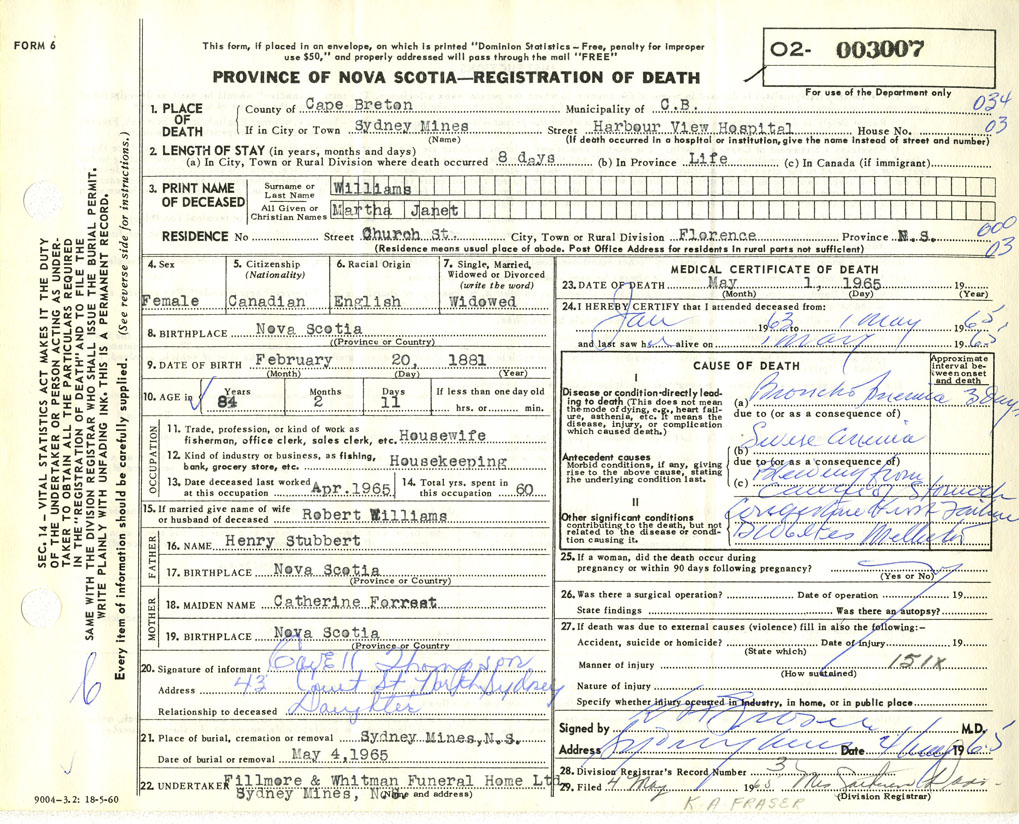 FORM 6
This form, if placed in an envelope, on which is printed "Dominion Statistics – Free, penalty for improper
use $50," and properly addressed will pass through the mail "FREE"
PROVINCE OF NOVA SCOTIA—REGISTRATION OF DEATH
O2- 003007
For use of the Department only
034
03
1. PLACE OF DEATH
County of Cape Breton Municipality of C.B.
If in City or Town Sydney Mines Street Harbour View Hospital House No.
(Name) (If death occurred in a hospital or institution, give the name instead of street and number)
2. LENGTH OF STAY (in years, months and days)
(a) In City, Town or Rural Division where death occurred 8 days (b) In Province Life (c) In Canada (if immigrant)
3. PRINT NAME OF DECEASED
Surname or Last Name Williams
All Given or Christian Names Martha Janet
000
03
RESIDENCE No Street Church St. City, Town or Rural Division Florence Province N.S.
(Residence means usual place of abode. Post Office Address for residents in rural parts not sufficient)
4. Sex
Female
5. Citizenship (Nationality)
Canadian
6. Racial Origin
English
7. Single, Married, Widowed or Divorced (write the word)
Widowed
8. BIRTHPLACE Nova Scotia
(Province or Country)
9. DATE OF BIRTH February 20, 1881
(Month) (Day) (Year)
10. AGE in Years 84 Months 2 Days 11 If less than one day old hrs. or min.
OCCUPATION
11. Trade, profession, or kind of work as
fisherman, office clerk, sales clerk, etc. Housewife
12. Kind of industry or business, as fishing,
bank, grocery store, etc. Housekeeping
13. Date deceased last worked at this occupation Apr.1965
14. Total yrs. spent in this occupation 60
15. If married give name of wife
or husband of deceased Robert Williams
FATHER
16. NAME Henry Stubbert
17. BIRTHPLACE Nova Scotia
(Province or Country)
MOTHER
18. MAIDEN NAME Catherine Forrest
19. BIRTHPLACE Nova Scotia
(Province or Country)
20. Signature of informant Cavell Thompson
Address 43 Court St. North Sydney
Relationship to deceased Daughter
21. Place of burial, cremation or removal Sydney Mines,N.S.
Date of burial or removal May 4,1965
22. UNDERTAKER Fillmore & Whitman Funeral Home Ltd
Sydney Mines, N.S.
(Name and address)
MEDICAL CERTIFICATE OF DEATH
23. DATE OF DEATH May 1, 1965 19
(Month) (Day) (Year)
24. I HEREBY CERTIFY that I attended deceased from:
Jan 1963 to 1 May 1965,
and last saw her alive on 1 May 1965
CAUSE OF DEATH
Approximate interval between onset and death
I
Disease or condition directly leading to death (This does not mean
the mode of dying, e.g., heart failure, asthenia, etc. It means the
disease, injury, or complication
which caused death.)
(a) Broncho Pneumonia 3 Days
due to (or as a consequence of)
Severe Anemia
(b)
due to (or as a consequence of)
Antecedent causes
Morbid conditions, if any, giving
rise to the above cause, stating
the underlying condition last.
(c) Bleeding from
Cancer of Stomach
II
Other significant conditions
contributing to the death, but not
related to the disease or condition causing it.
Congestive Heart Failure
Diabetes Mellitus
25. If a woman, did the death occur during
pregnancy or within 90 days following pregnancy?
(Yes or No)
26. Was there a surgical operation? Date of operation 19
State findings Was there an autopsy?
27. If death was due to external causes (violence) fill in also the following:–
Accident, suicide or homicide? Date of injury 19
(State which)
Manner of injury 151X
(How sustained)
Nature of injury
Specify whether injury occurred in industry, in home, or in public place
Signed by M.D.
Address Sydney Mines Date 4 May 1965
28. Division Registrar's Record Number 3
29. Filed 4 May 1965 Mrs
(Division Registrar)
K. A FRASER
SEC. 14 – VITAL STATISTICS ACT MAKES IT THE DUTY
OF THE UNDERTAKER OR PERSON ACTING AS UNDER-
TAKER TO OBTAIN ALL THE PARTICULARS REQUIRED
IN THE "REGISTRATION OF DEATH" AND TO FILE THE
SAME WITH THE DIVISION REGISTRAR WHO SHALL ISSUE THE BURIAL PERMIT.
WRITE PLAINLY WITH UNFADING INK. THIS IS A PERMANENT RECORD.
Every item of information should be carefully supplied. (See reverse side for instructions.)
6
9004–3.2: 18-5-60